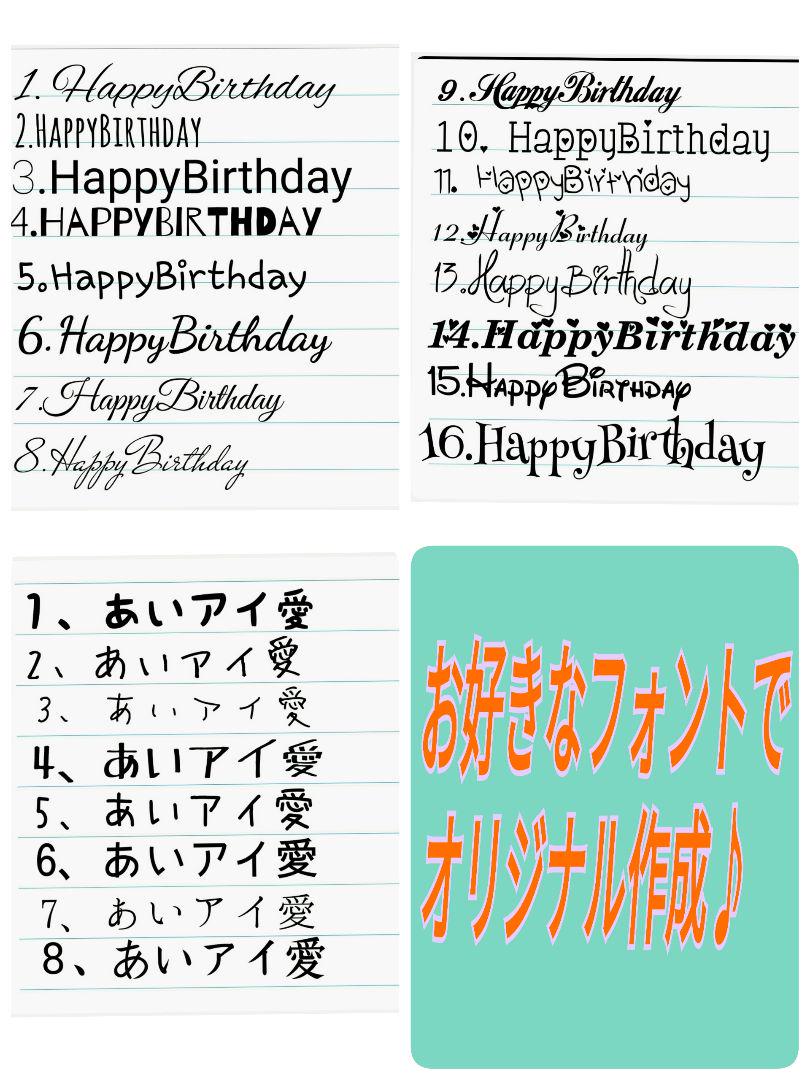 1. HappyBirthday
2.HAPPYBIRTHDAY
3.HappyBirthday
4.HAPPYBIRTHDAY
5.HappyBirthday
6.HappyBirthday
7.HappyBirthday
8.HappyBirthday
9.HappyBirthday
10. HappyBirthday
11. HappyBirthday
12.HappyBirthday
13.HappyBirthday
14.HappyBirthday
15.HAPPYBIRTHDAY
16.HappyBirthday
1、あいアイ愛
2、あいアイ愛
3、あいアイ愛
4、あいアイ愛
5、あいアイ愛
6、あいアイ愛
7、あいアイ愛
8、あいアイ愛
お好きなフォントで
オリジナル作成♪